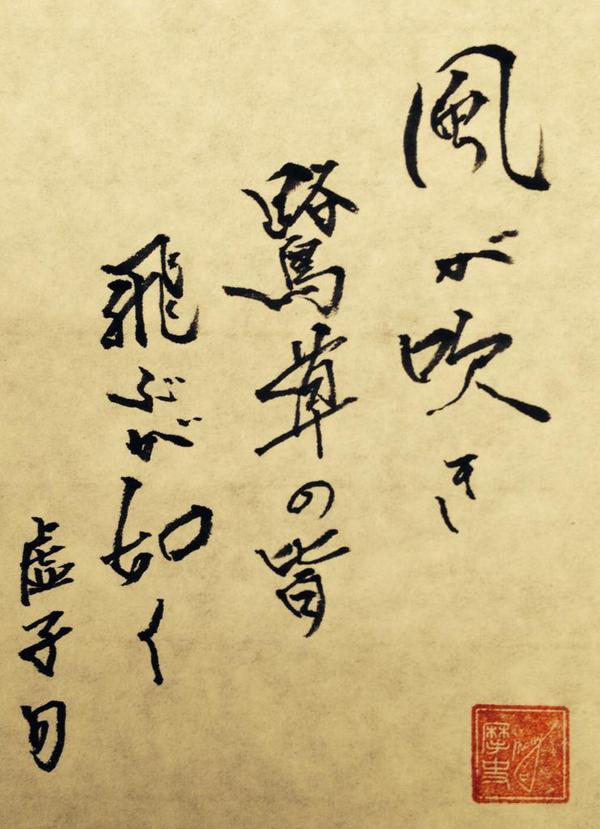 風が吹き
鷺草の皆
飛ぶが如く
虚子句